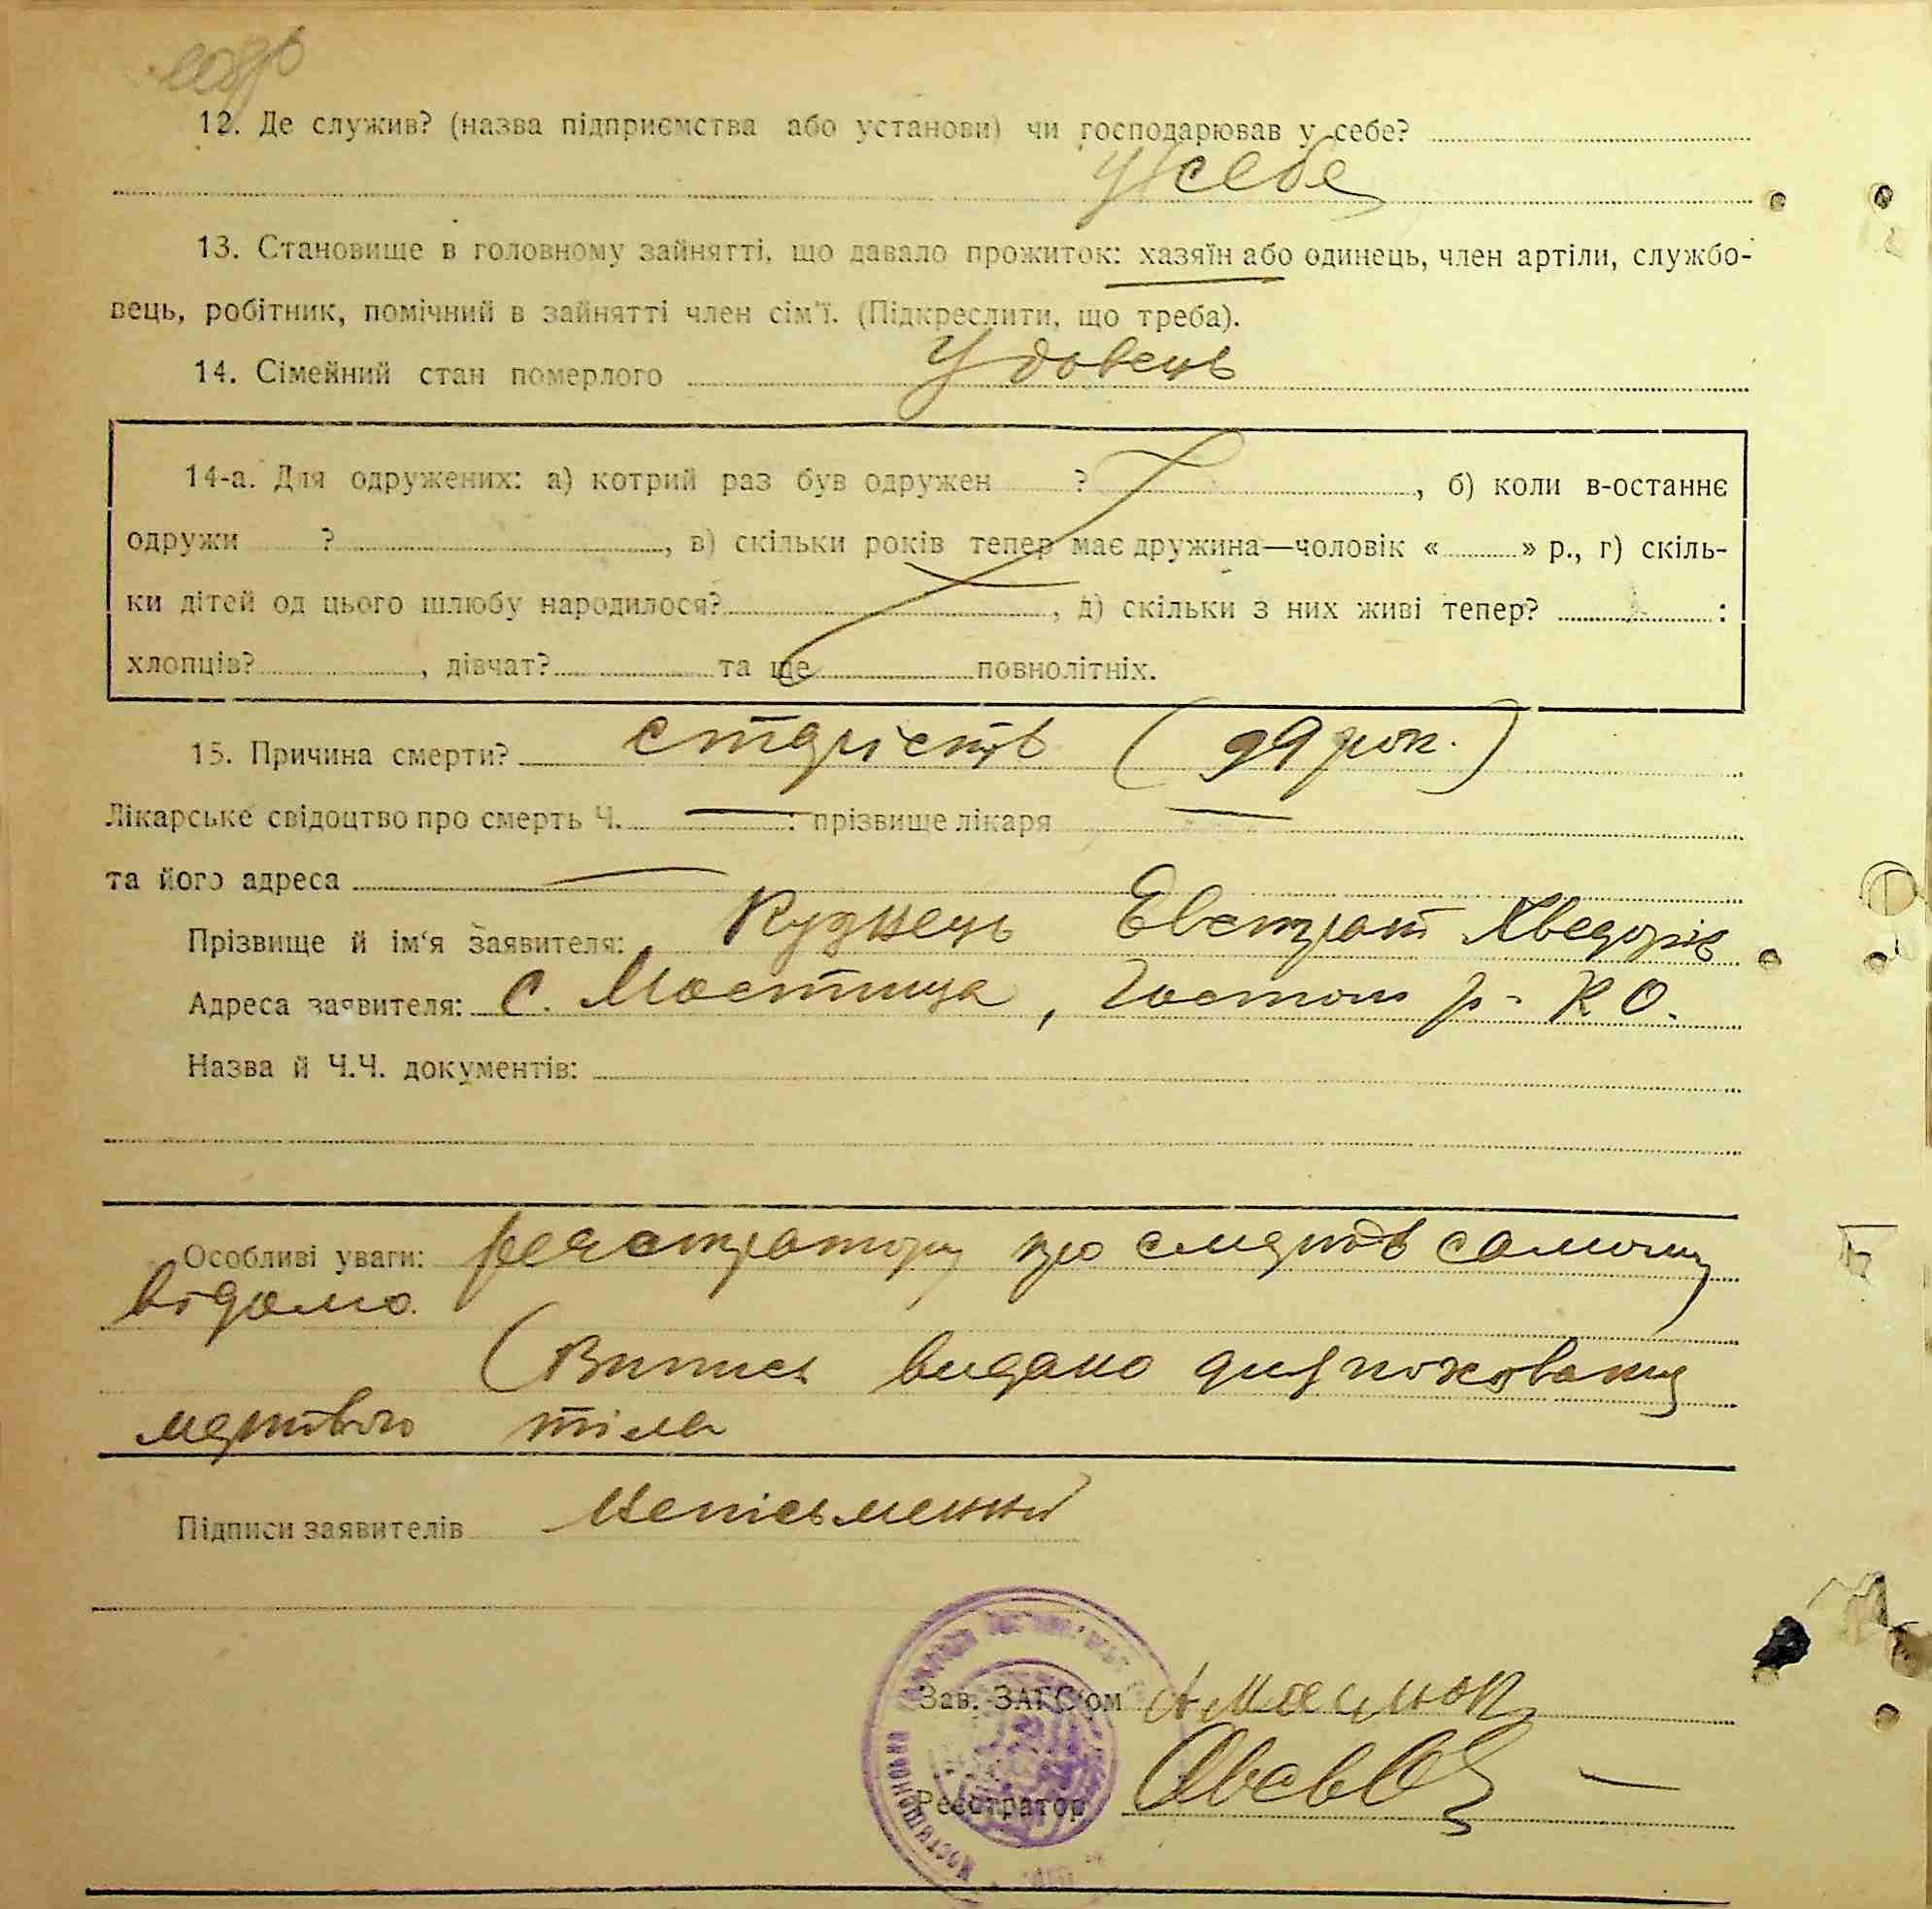 12. Де служив? (назва підприємства або установи) чи господарював у себе?
У себе
13. Становище в головному зайнятті, що давало прожиток: хазяїн або одинець, член артіли, службо-
вець, робітник, помічний в зайнятті член сім'ї. (Підкреслити, що треба).
14. Сімейний стан померлого Удовець
14-а. Для одружених: а) котрий раз був одружен ? , б) коли в-останнє
одружи ? , в) скільки років тепер має дружина—чоловік « » р., г) скіль-
ки дітей од цього шлюбу народилося? , д) скільки з них живі тепер? :
хлопців? , дівчат? та ще повнолітніх.
15. Причина смерти? старість ( рок.)
Лікарське свідоцтво про смерть Ч. — : прізвище лікаря —
та його адреса —
Прізвище й ім'я заявителя: Кузнець Евстрат Хведорів
Адреса заявителя: С. Мостища, Гостом р- К О.
Назва й Ч.Ч. документів:
Особливі уваги: реєстратору про смерть самому
відомо.
(Випись видано для поховання
мертвого тіла
Підписи заявителів неписьменний
Зав. ЗАГС'ом
Реєстратор